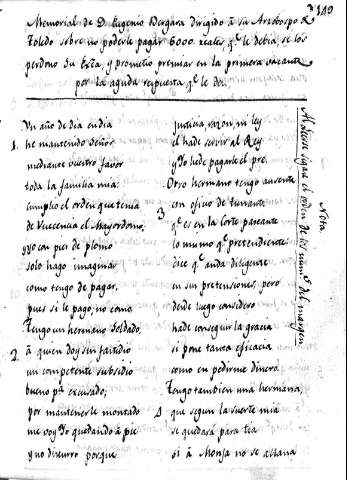 340
Memorial de D. Eugenio Vergara dirigido á su Arzobispo de
Toledo sobre no poderle pagar 6000 reales, q.e le debia, se los
perdono Su Exa, y prometio premiar en la primera vacante
por la aguda respuesta q.e le dio.
Un año de dia en dia
1. he mantenido Señor
mediante vuestro favor
toda la familia mia:
cumplio el orden que tenia
de Vuecencia el Mayordomo,
y yo con pies de plomo
solo hago imaginar
como tengo de pagar,
pues si le pago, no como
Tengo un hermano Soldado,
2. á quien doy sin fastidio
un competente subsidio
bueno p.a escusado;
por mantenerle montado
me voy Yo quedando á pie
y no discurro porque
Justicia, razon, ni ley
el hade servir al Rey
y Yo hede pagarle el pre.
Otro hermano tengo ausente
3 con oficio de tunante
q.e es en la Corte paseante
lo mismo q.e pretendiente
dice q.e anda diligente
en sus pretensiones, pero
desde luego considero
hade conseguir la gracia
si pone tanta eficacia
como en pedirme dinero.
Tengo tambien una hermana,
4 que segun la suerte mia
se quedará para tia
si á Monja no se allana
Nota
Al decirse sigase el orden de los num.s del margen